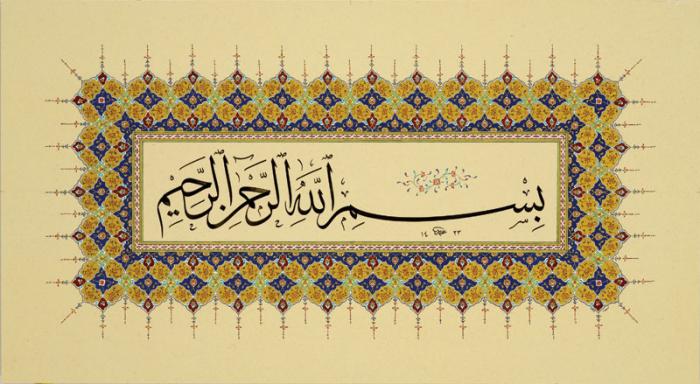 بِسْمِ ٱللَّهِ ٱلرَّحْمَٰنِ ٱلرَّحِيمِ
١٤ ٢٣